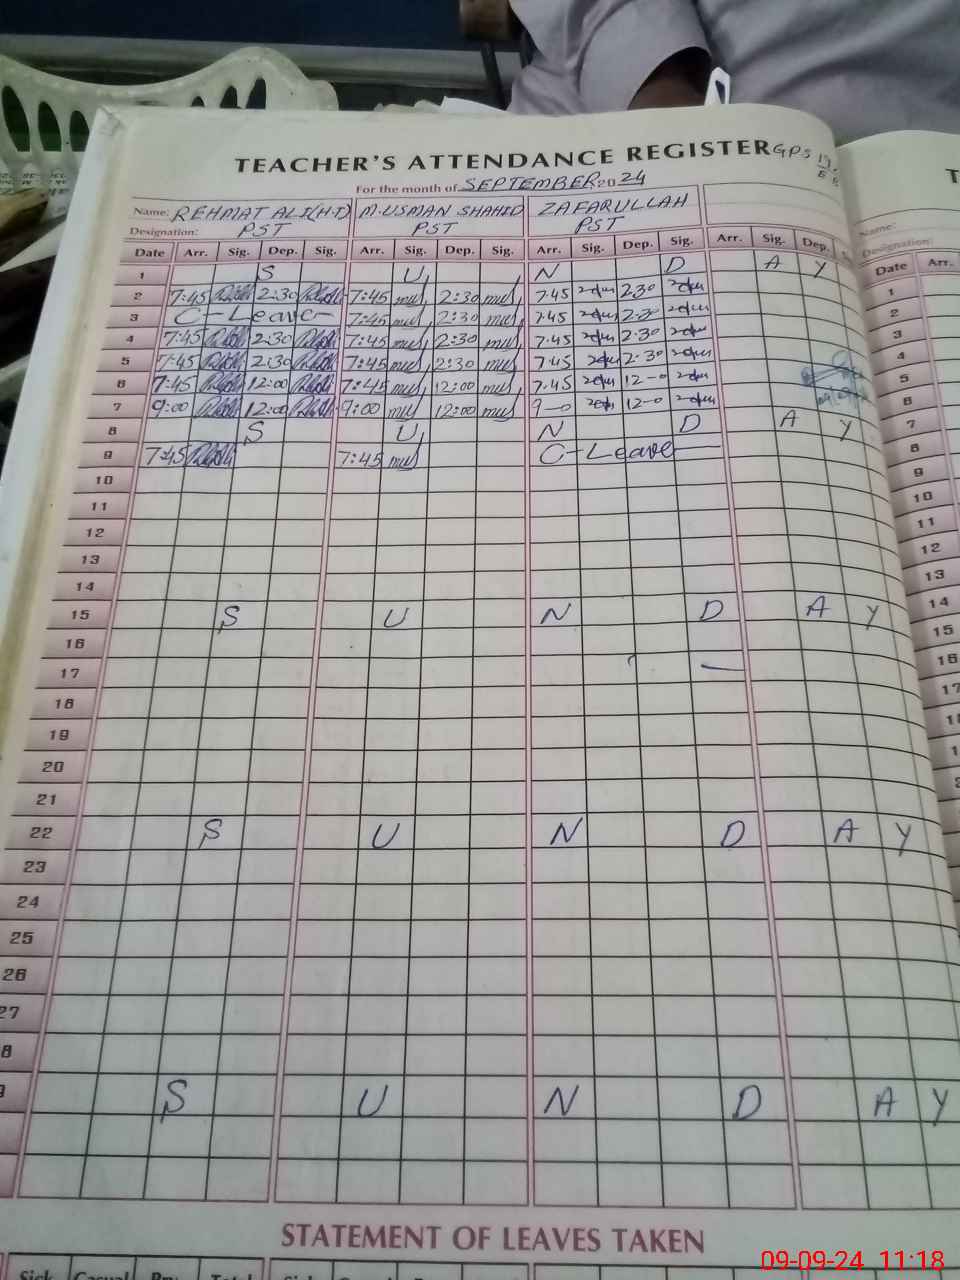 TEACHER'S ATTENDANCE REGISTER GPS
For the month of SEPTEMBER 2024
Name: REHMAT ALI (H.T) M.USMAN SHAHID ZAFARULLAH
Designation: PST PST PST
Date Arr. Sig. Dep. Sig. Arr. Sig. Dep. Sig. Arr. Sig. Dep. Sig. Arr. Sig. Dep.
1 S U N D A Y
2 7:45 2:30 7:45 2:30 7.45 2.30
3 C-Leave 7:45 2:30 7.45 2.30
4 7:45 2:30 7:45 2:30 7.45 2.30
5 7:45 2:30 7:45 2:30 7.45 2.30
6 7:45 12:00 7:45 12:00 7.45 12-0
7 9:00 12:00 9:00 12:00 9-0 12-0
8 S U N D A Y
9 7:45 7:45 C-Leave
10
11
12
13
14
15 S U N D A Y
16
17
18
19
20
21
22 S U N D A Y
23
24
25
26
27
8
9 S U N D A Y
STATEMENT OF LEAVES TAKEN
Sick Casual Total Sick
Name:
Designation:
Date Arr.
1
2
3
4
5
6
7
8
9
10
11
12
13
14
15
16
17
09-09-24 11:18